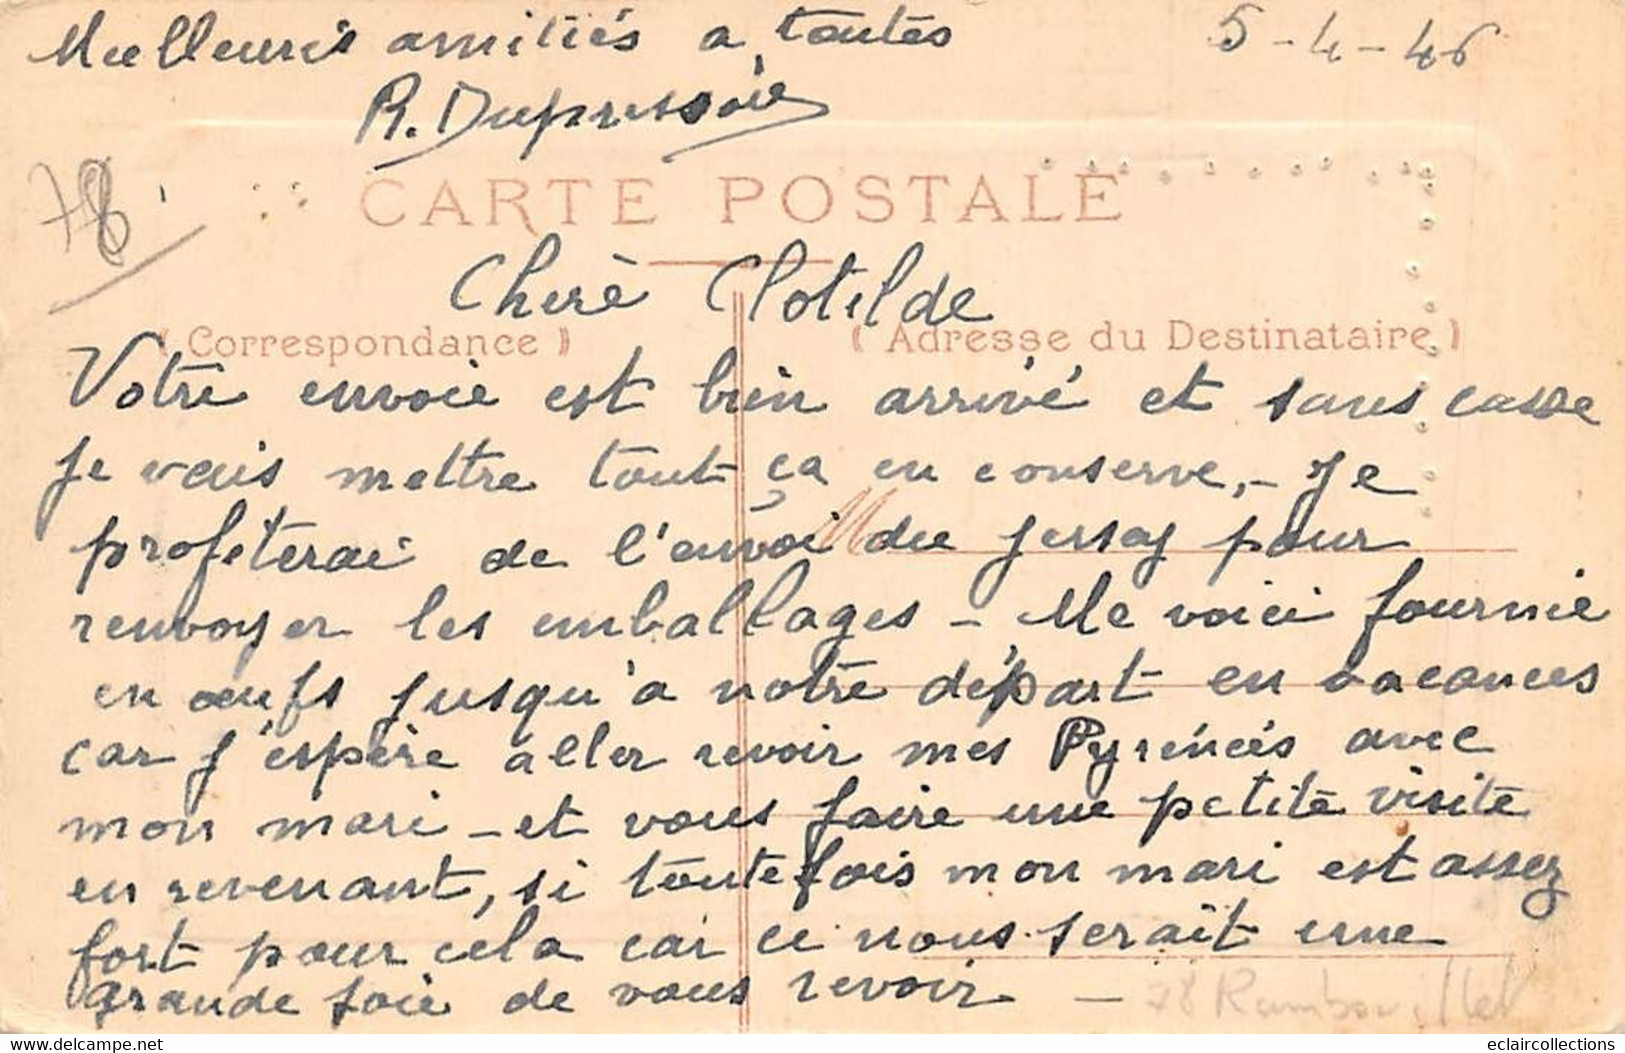 Meilleures amitiés a toutes 5-4-46
R. Dupressoir
78
CARTE POSTALE
Chere Clotilde
( Correspondance ) ( Adresse du Destinataire )
Votre envoie est bien arrivé et sans casse
Je vais mettre tout ça en conserve, - Je
profiterai de l'envoi du pour
renvoyer les emballages - Me voici fournie
en œufs jusqu'à notre départ en vacances
car j'espère aller revoir mes Pyrénées avec
mon mari - et vous faire une petite visite
en revenant, si toutefois mon mari est assez
fort pour cela car ce nous serait une
grande joie de vous revoir -
78 Rambouillet
eclaircollections